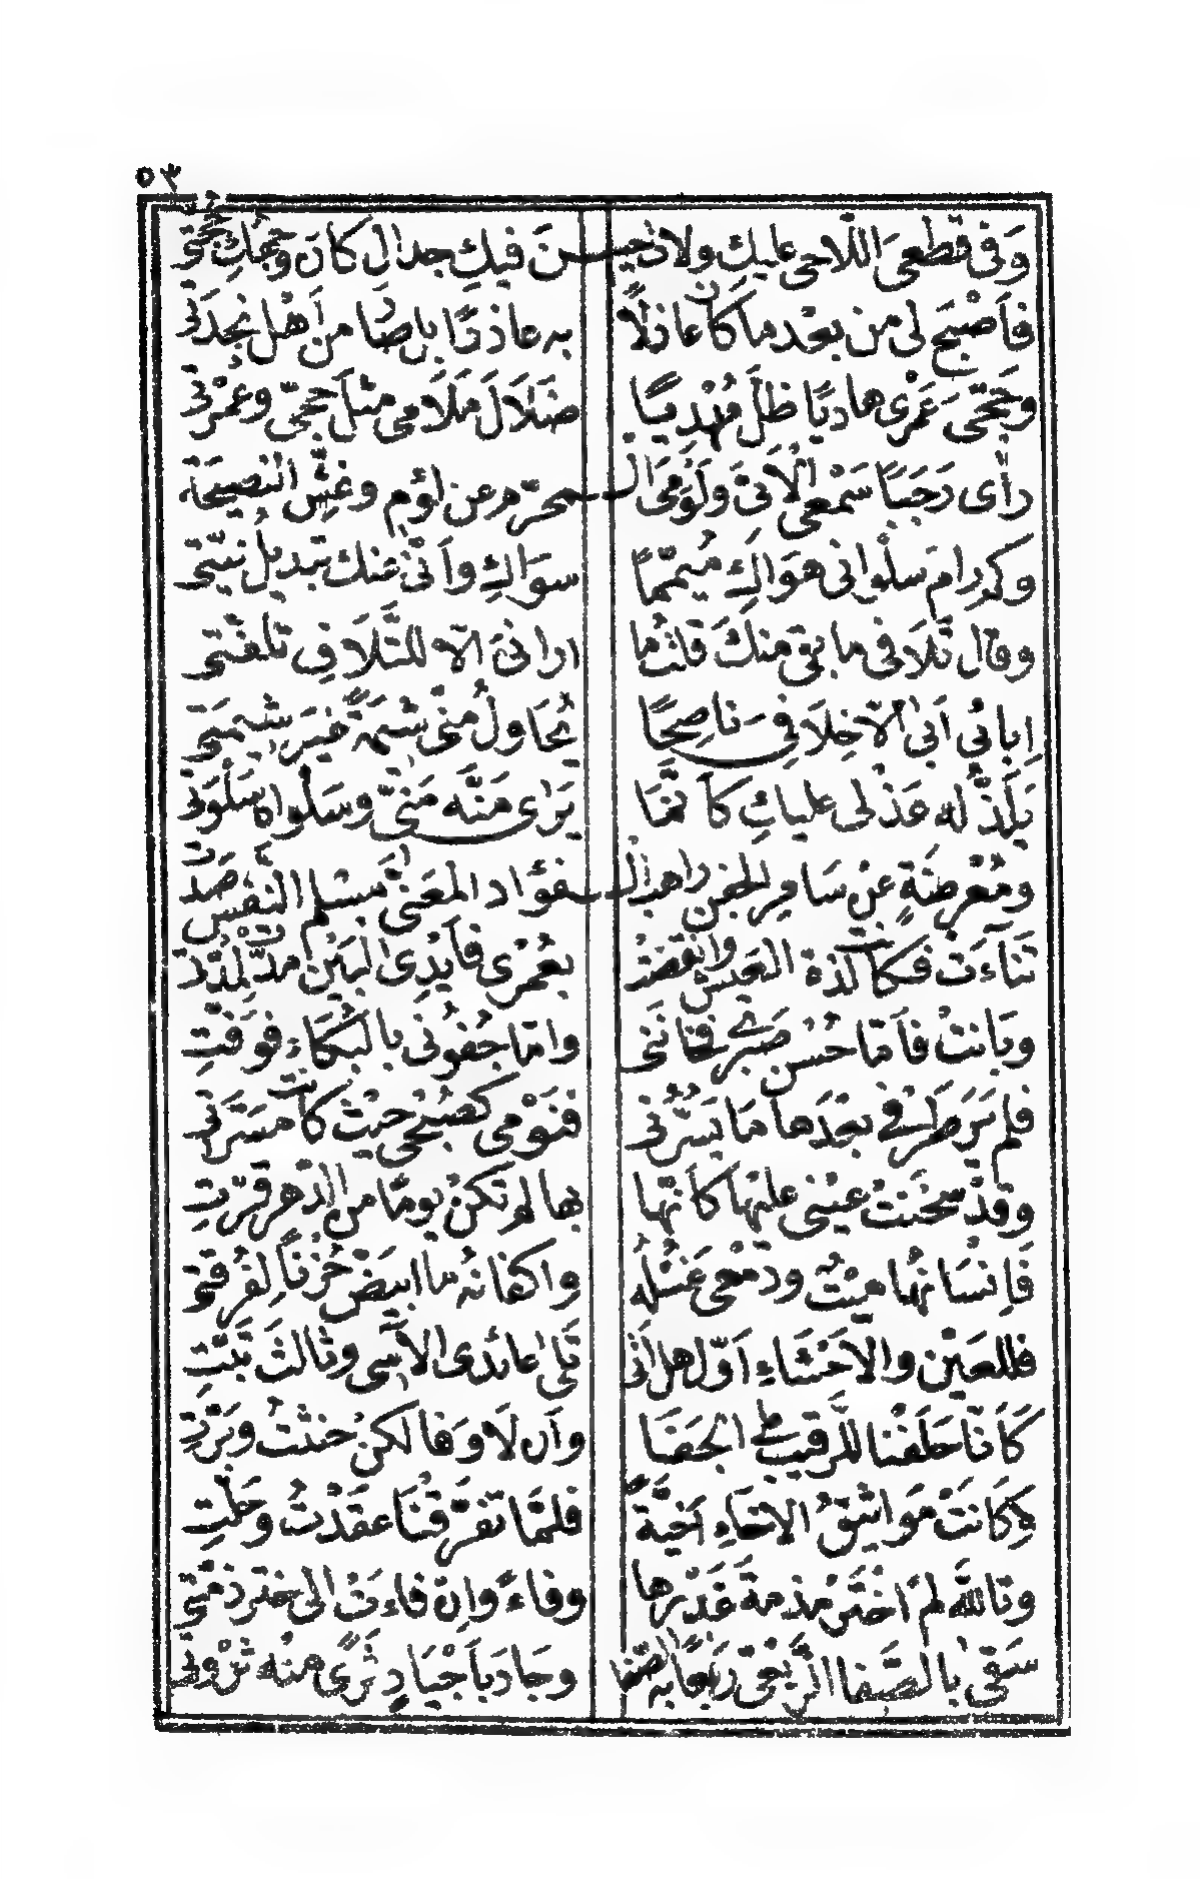 ٥٣
وَفى قَطعى اللّاحى عليكِ ولات حيـــنَ فيكِ جدال كانَ وجهكِ حجّتى
فاَصْبَحَ لى من بعْد ما كان عاذلاً به عاذرًا بل صَار من اَهْل نجدَتى
وحَجّى عَمْرى هاديًا ظلَّ مُهْديًا ضلَالَ مَلَامى مثلَ حجّى وعمْرتى
رأى رَجبًا سَمْعى الاَبىّ ولَوْمى الـــمحرّم عن لؤم وغشّ النصيحة
وكم رامَ سلْوانى هَواكِ مُيمّمًا سوَاكِ واَنّى عنك تبديلُ نيّتى
وقال تَلَافى ما بقى منكَ قلتُ ما ارانىَ الّا للتّلَافِ تلفّتى
اِبائى اَبى الّا خِلَافى نَاصِحًا يُحَاولُ منّى شيمَةً غيرَ شيمَتى
يَلَذّ له عَذْلى عليكِ كاَنّما يَرَى مَنّه مَنّى وسَلْواه سَلْوَتى
ومُعْرضَةٍ عنْ سَامر الجفن راهب الـــفؤاد المعَنّى مسْلم النفس صَدّت
تَناءَت فكانت لذة العَيش وانقضت بعُمْرى فاَيْدى البَيْن مدّتْ لمدّت
وبَانتْ فاَمّا حُسْن صَبْرى فخاننى وامّا جُفونى بالبُكَاءِ فوَفّتِ
فلم يَرَ طَرْفى بعْدَها مَا يَسُرّنى فنَوْمى كصُبْحى حيْث كانت مسَرّتى
وقدْ سخَنتْ عيْنى عليْها كاَنّها بها لم تكنْ يومًا من الدّهر قرّتِ
فَاِنسَانُها ميْتٌ ودمْعى غسْلُه واكفانُه ما ابيَضّ حُزْناً لفُرقتى
فللعَيْن والاَحْشَاءِ اَوّل هل اَتى تَلى عائدى الآسى وثالث تبّتِ
كَاَنّا حلَفْنا للرّقيب على الجفَا وان لَا وَفا لكن حنثتُ وبَرّتِ
وكانَتْ مَواثيقُ الاخاءِ اَخيّةً فلمّا تفرّقنَا عقَدْتُ وحلّتِ
وتاللّه لم اَختَرْ مذمةَ غَدْرها وفاءً وان فاءَت الى خترِ ذمّتى
سَقى بالصّفا الرّبعىّ رَبعًا به الصّفا وجَادَ باَجْيَادٍ ثَرًى منهُ ثرْوتى